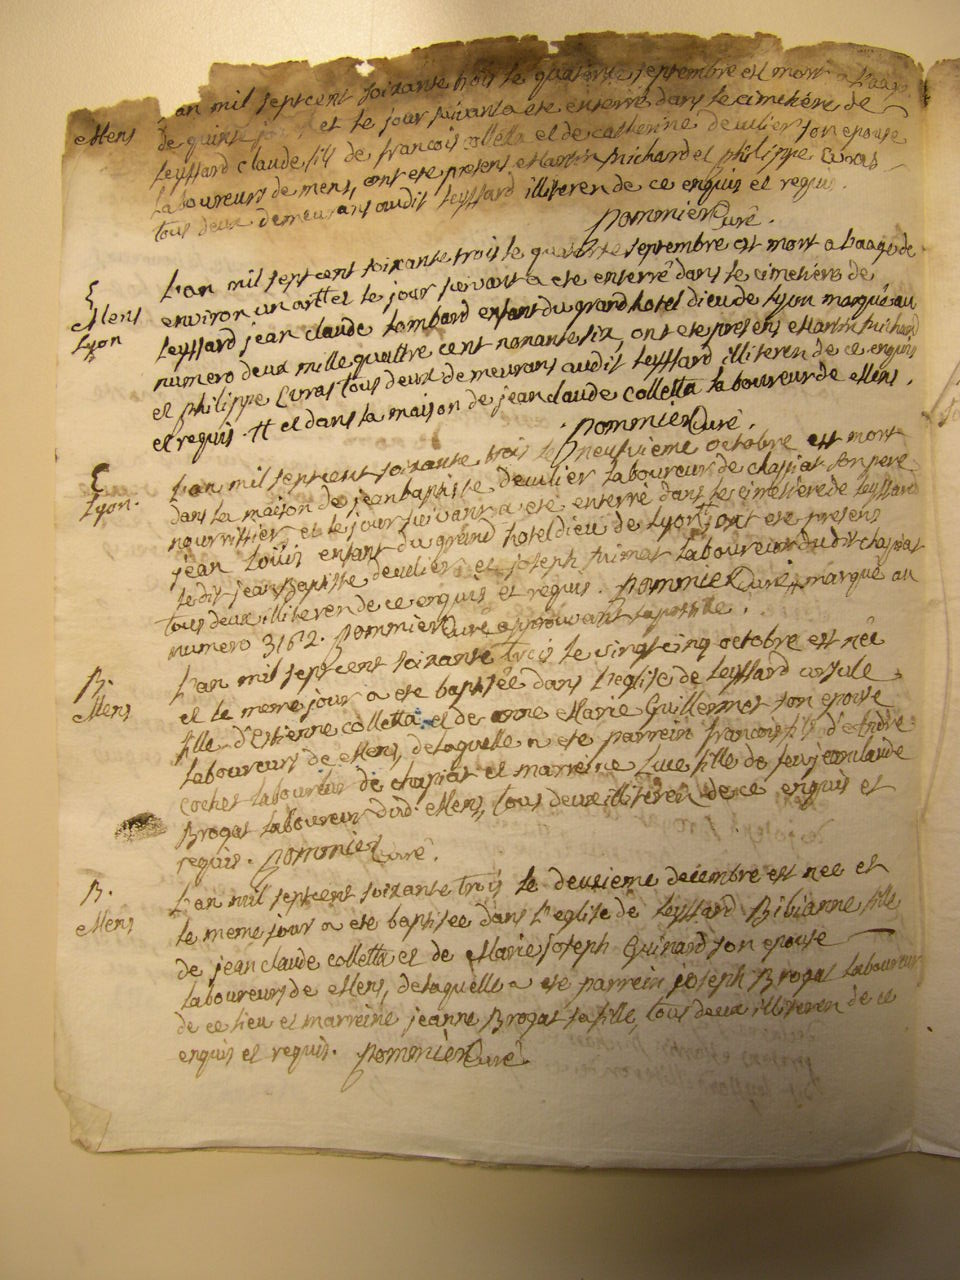 an mil septcent soixante trois le quatorze septembre est mort a l'aage
Mens de quinse et le jour suivant a eté enterré dans le cimetière de
Leyssard claude fils de francois colletta et de catherine deculier son epouse
Laboureurs de mens, ont eté presens Martin Michard et philippe Curas
tous deux demeurans audit Leyssard illiteren de ce enquis et requis.
pommier Curé.
L'an mil septcent soixante trois le quatorze septembre est mort a l'aage de
Mens environ un an et le jour suivant a eté enterré dans le cimetière de
Lyon Leyssard jean claude Lombard enfant du grand hotel dieu de Lyon marqué au
numero deux mille quattre cent nonante six, ont eté presens Martin Michard
et philippe Curas tous deux demeurans audit Leyssard illiteren de ce enquis
et requis. # et dans la maison de jean claude colletta laboureur de Mens.
pommier Curé.
L'an mil septcent soixante trois le neufvieme octobre est mort
Lyon. dans la maison de jean baptiste deculier Laboureur de chapiat son pere
nourrissier et le jour suivant a eté enterré dans le cimetiere de Leyssard
jean Loüis enfant du grand hotel dieu de Lyon # ont eté presens
le dit jean Baptiste deculier et joseph laboureur dudit chapiat
tous deux illiteren de ce enquis et requis. pommier Curé # marqué au
numero 3162. pommier Curé approuvant l'apostille.
B. L'an mil septcent soixante trois le vingt cinq octobre est née
Mens et le meme jour a eté baptisée dans l'eglise de Leyssard ursule
fille d'Estienne colletta et de anne Marie Guillermet son epouse
Laboureurs de Mens, de laquelle a eté parrein francois fils d'André
cochet laboureur de chapiat et marreine Luce fille de feu jean claude
Brogat laboureur dud. Mens, tous deux illiteren de ce enquis et
requis. pommier Curé.
B. L'an mil septcent soixante trois le deuxieme decembre est née et
Mens le meme jour a eté baptisée dans l'eglise de Leyssard Bibianne fille
de jean claude colletta et de Marie joseph Guinard son epouse
Laboureurs de Mens, de laquelle a eté parrein joseph Brogat laboureur
de ce lieu et marreine jeanne Brogat sa fille, tous deux illiteren de ce
enquis et requis. pommier Curé